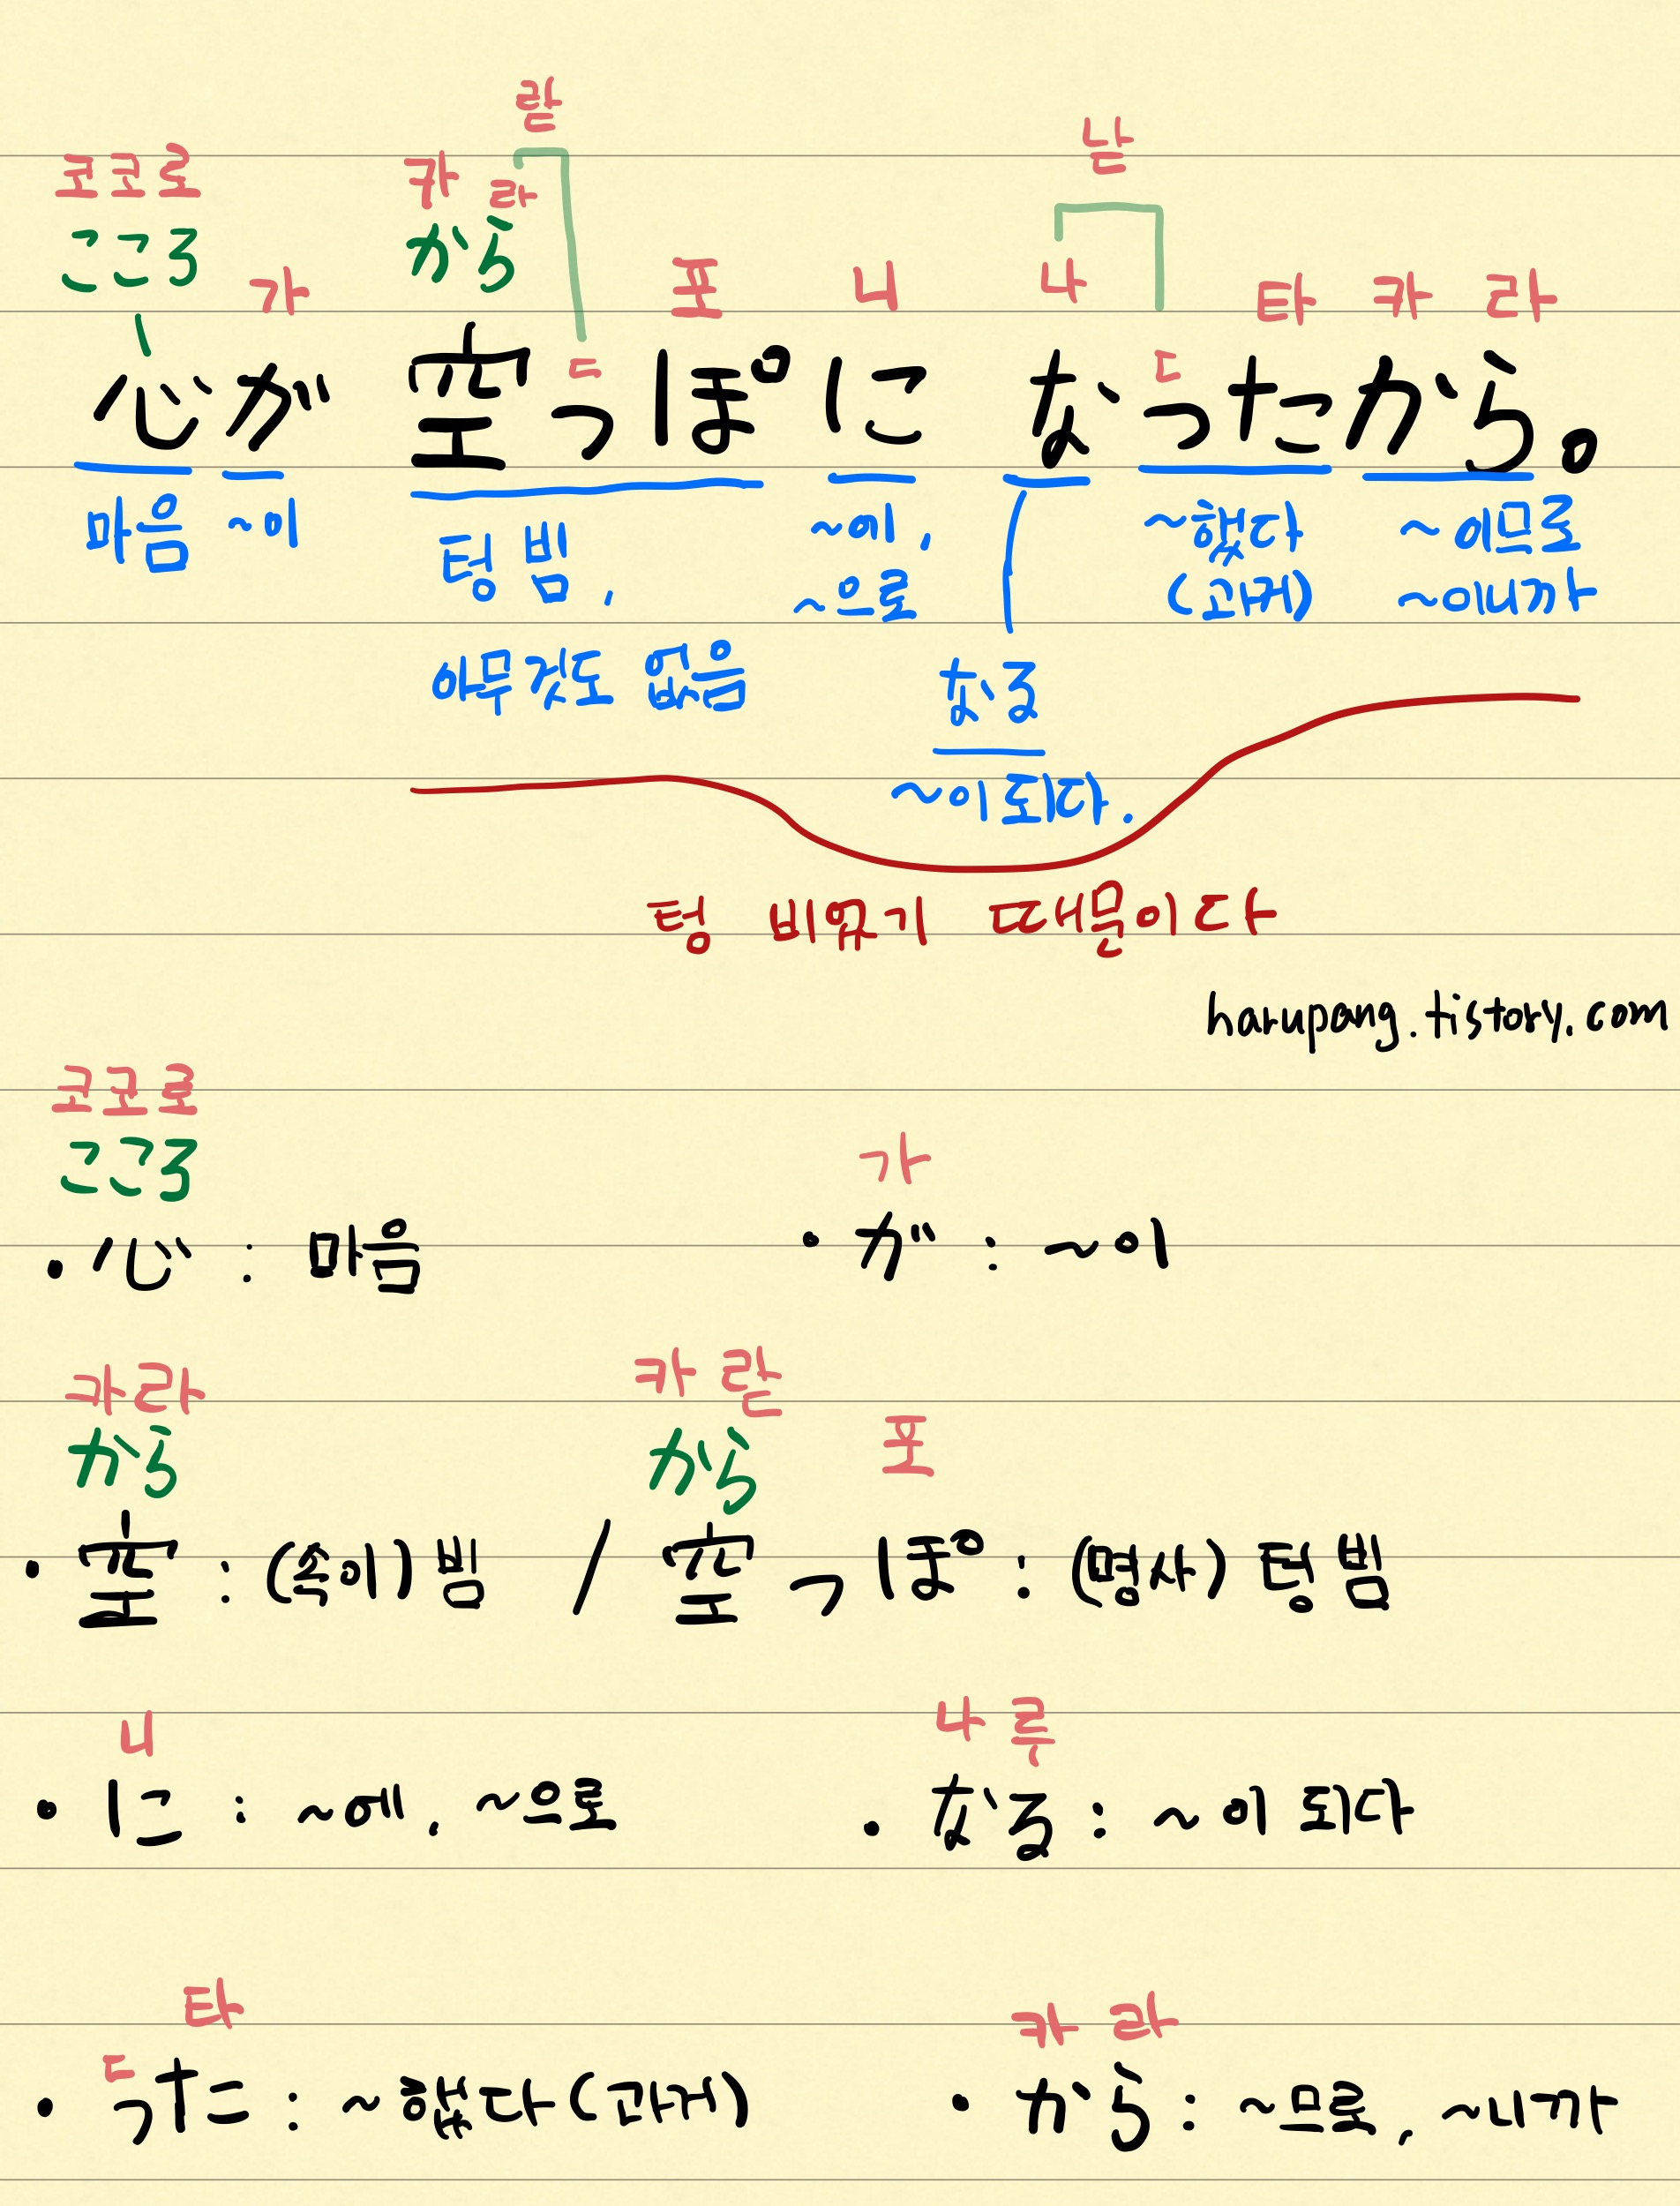 랃
낟
코코로 카 라
こころ から
가 포 니 나 타 카 라
ㄷ ㄷ
心が 空っぽに なったから。
마음 ~이 텅 빔, ~에, ~했다 ~이므로
아무것도 없음 ~으로 (과거) ~이니까
なる
~이 되다.
텅 비었기 때문이다
harupang.tistory.com
코코로
こころ
가
・心 : 마음 ・が : ~이
카라 카 랃
から から 포
・空 : (속이) 빔 / 空っぽ : (명사) 텅 빔
니 나 루
・に : ~에, ~으로 ・なる : ~이 되다
타 카 라
ㄷ
・った : ~했다 (과거) ・から : ~므로, ~니까